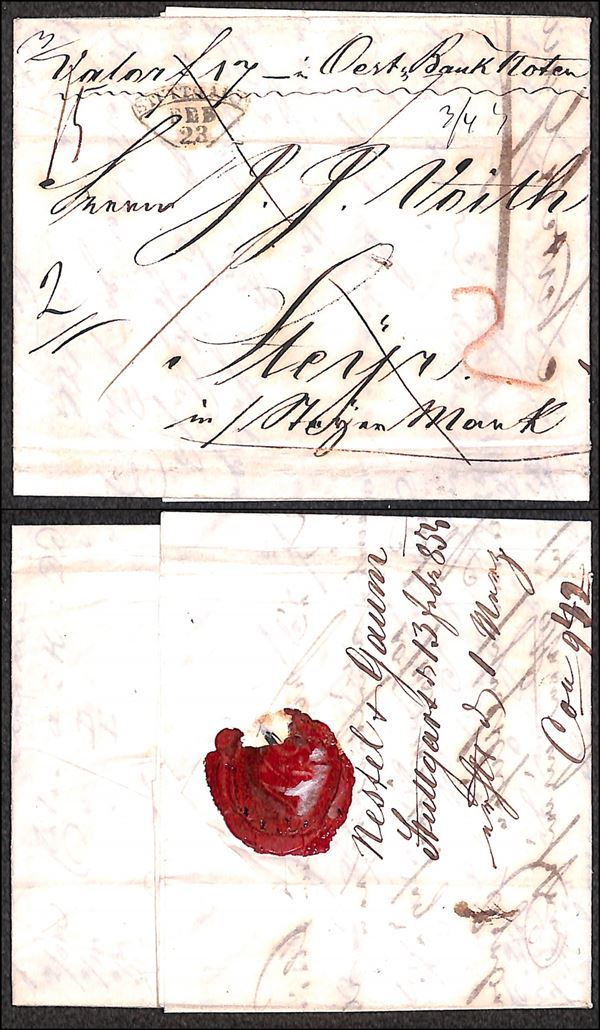 Valor f 17 — in Oestr Bank Noten
STUTTGART
FEB
23
3/4
Herrn J. P. Voith
2
2
Steÿr
in / Steÿer Mark
Nestel & Gaum
Stuttgart d 13 Febr 856
d 1 Merz
Cou 942